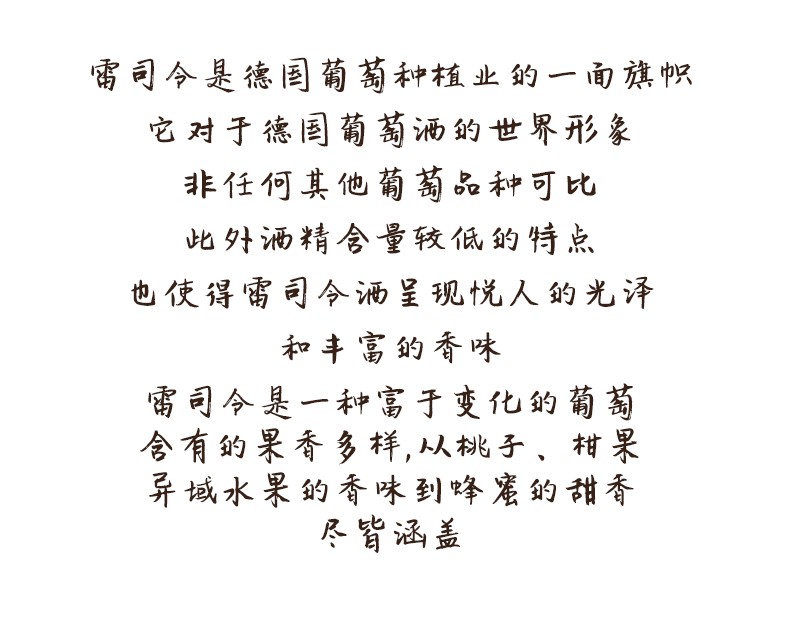 雷司令是德国葡萄种植业的一面旗帜
它对于德国葡萄酒的世界形象
非任何其他葡萄品种可比
此外酒精含量较低的特点
也使得雷司令酒呈现悦人的光泽
和丰富的香味
雷司令是一种富于变化的葡萄
含有的果香多样,从桃子、柑果
异域水果的香味到蜂蜜的甜香
尽皆涵盖